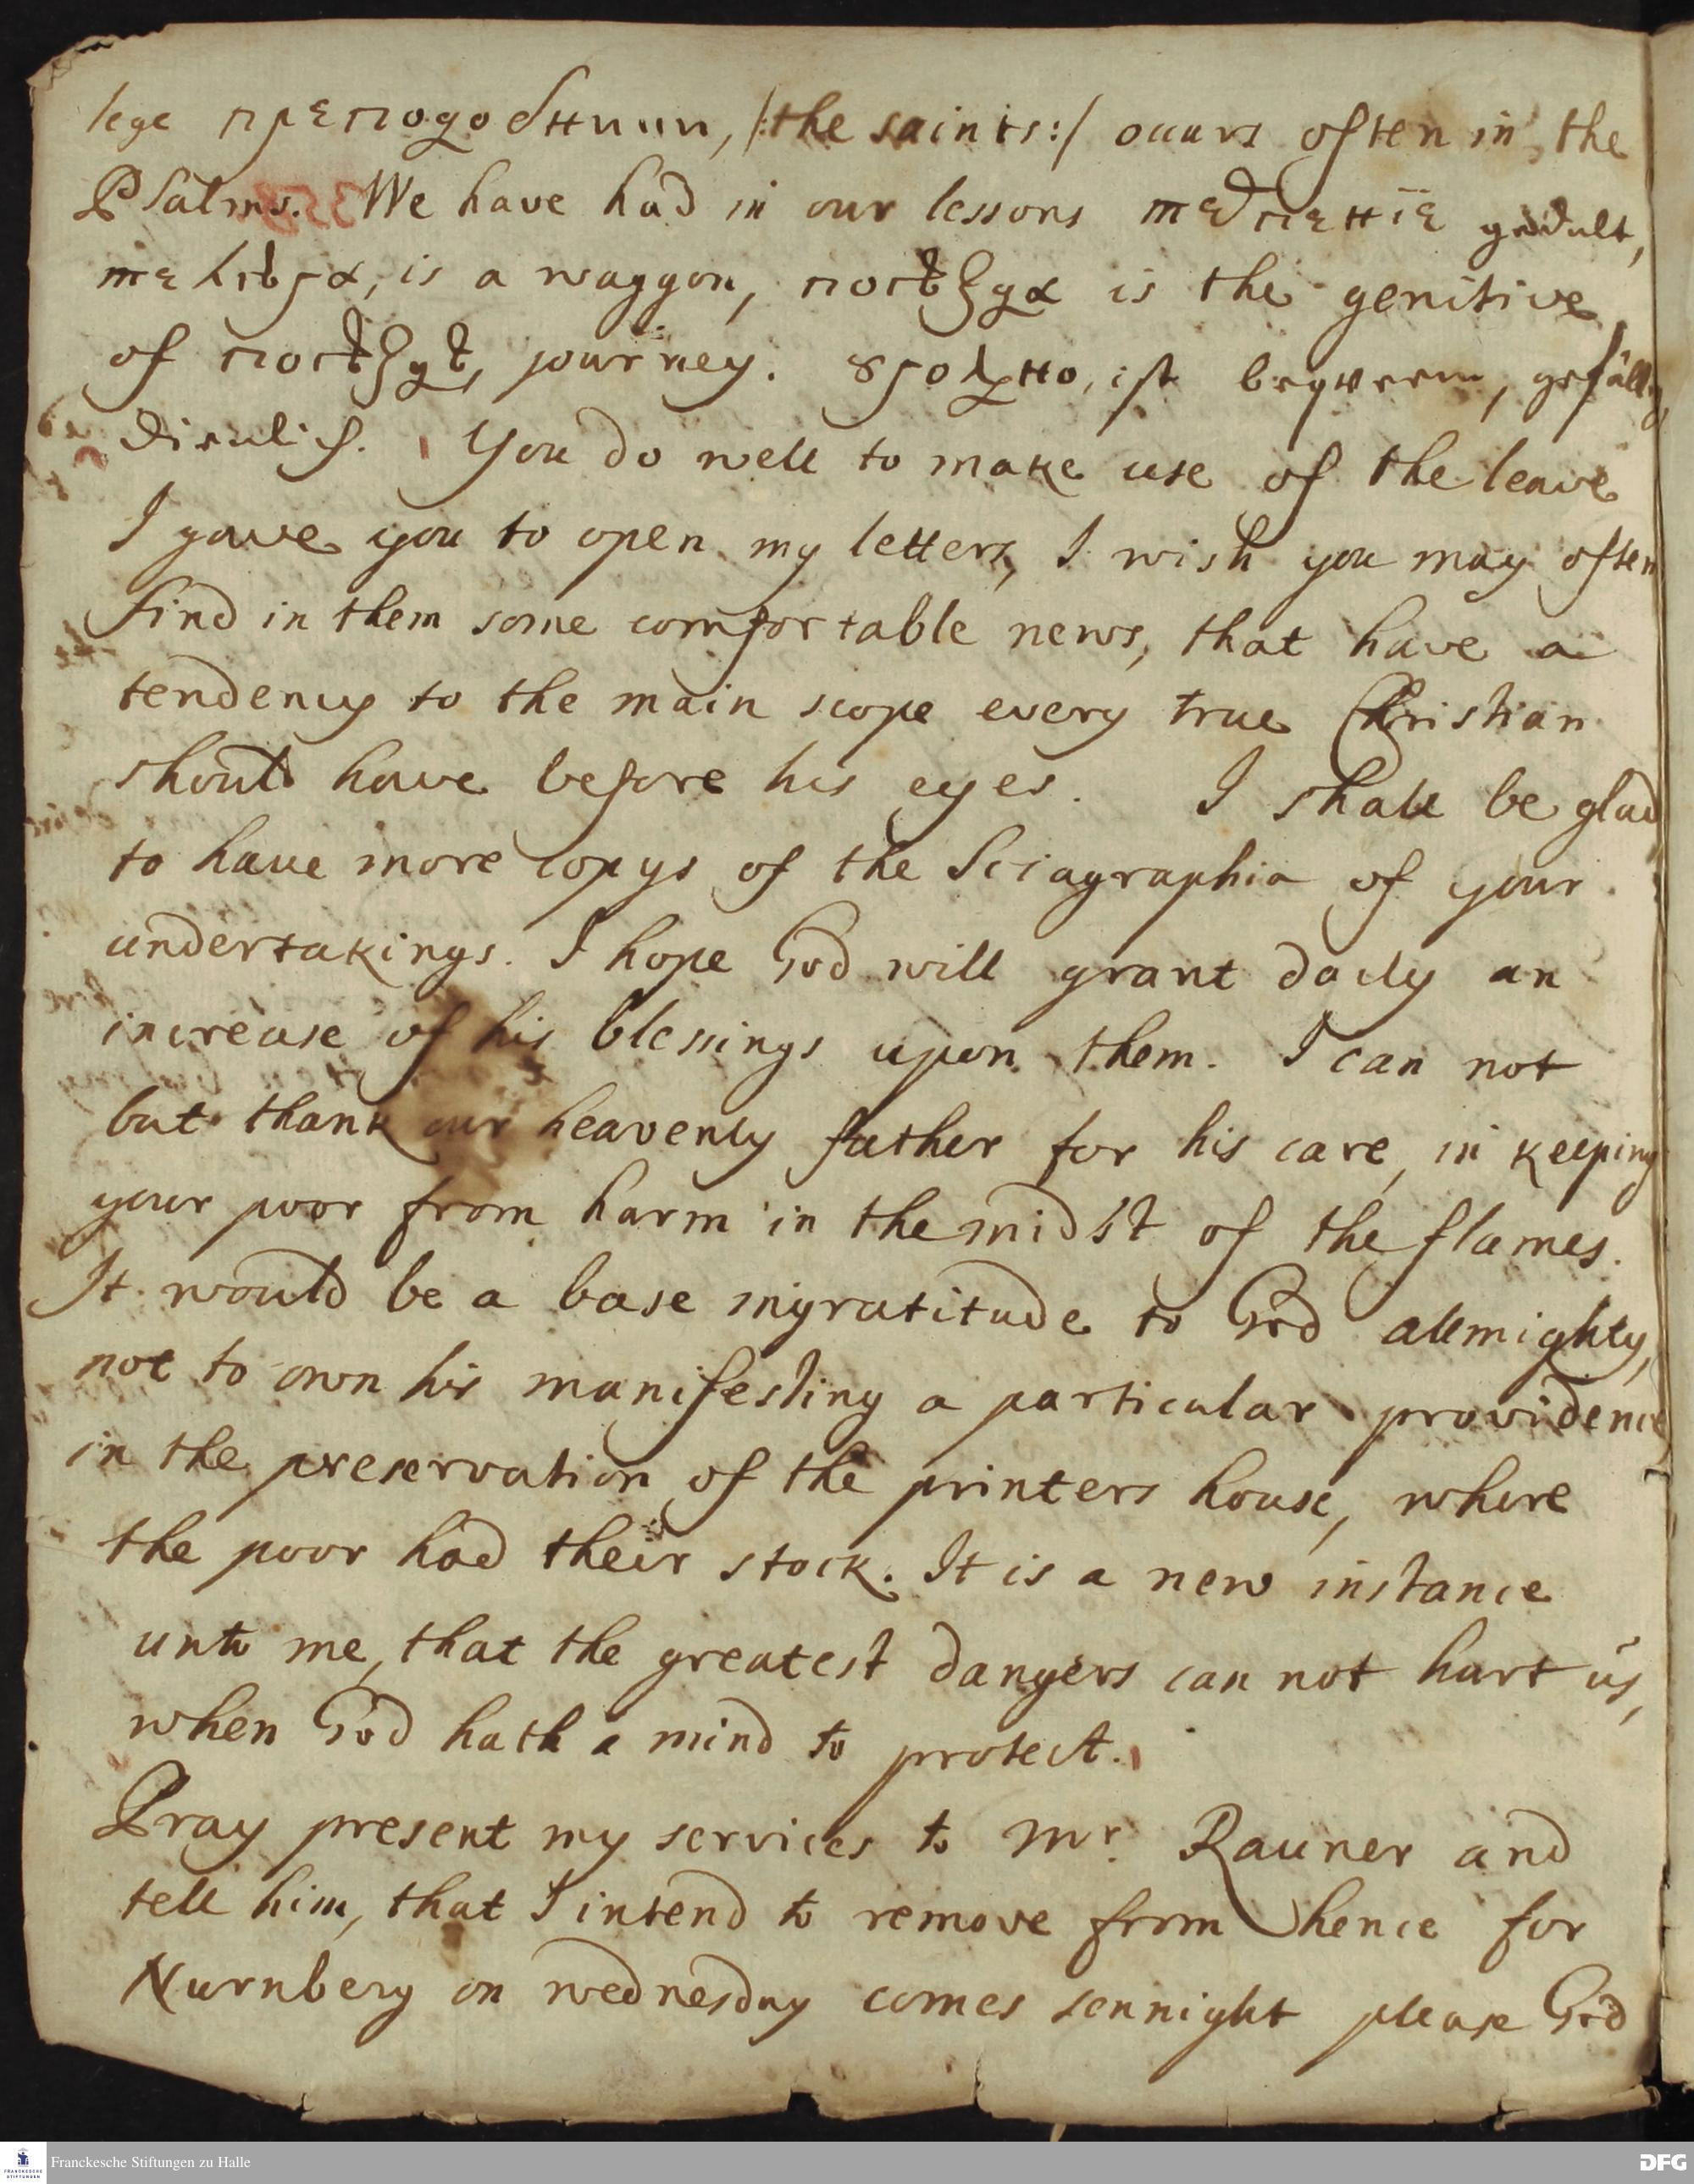 lege препододнии, /:the saints:/ occurs often in the
Psalms. We have had in our lessons gedult,
is a waggon, is the genitive
of journey. ist beqweem, gefällig
dienlich. You do well to make use of the leave
I gave you to open my letters, I wish you may often
find in them some comfortable news, that have a
tendency to the main scope every true Christian
should have before his eyes. I shall be glad
to have more copys of the Sciagraphia of your
undertakings. I hope God will grant daily an
increase of his blessings upon them. I can not
but thank our heavenly father for his care, in keeping
your poor from harm in the midst of the flames.
It would be a base ingratitude to God allmighty,
not to own his manifesting a particular providence
in the preservation of the printers house, where
the poor had their stock. It is a new instance
unto me, that the greatest dangers can not hurt us,
when God hath a mind to protect.
Pray present my services to Mr. Rauner and
tell him, that I intend to remove from hence for
Nurnberg on wednesday comes sennight please God
Franckesche Stiftungen zu Halle
DFG